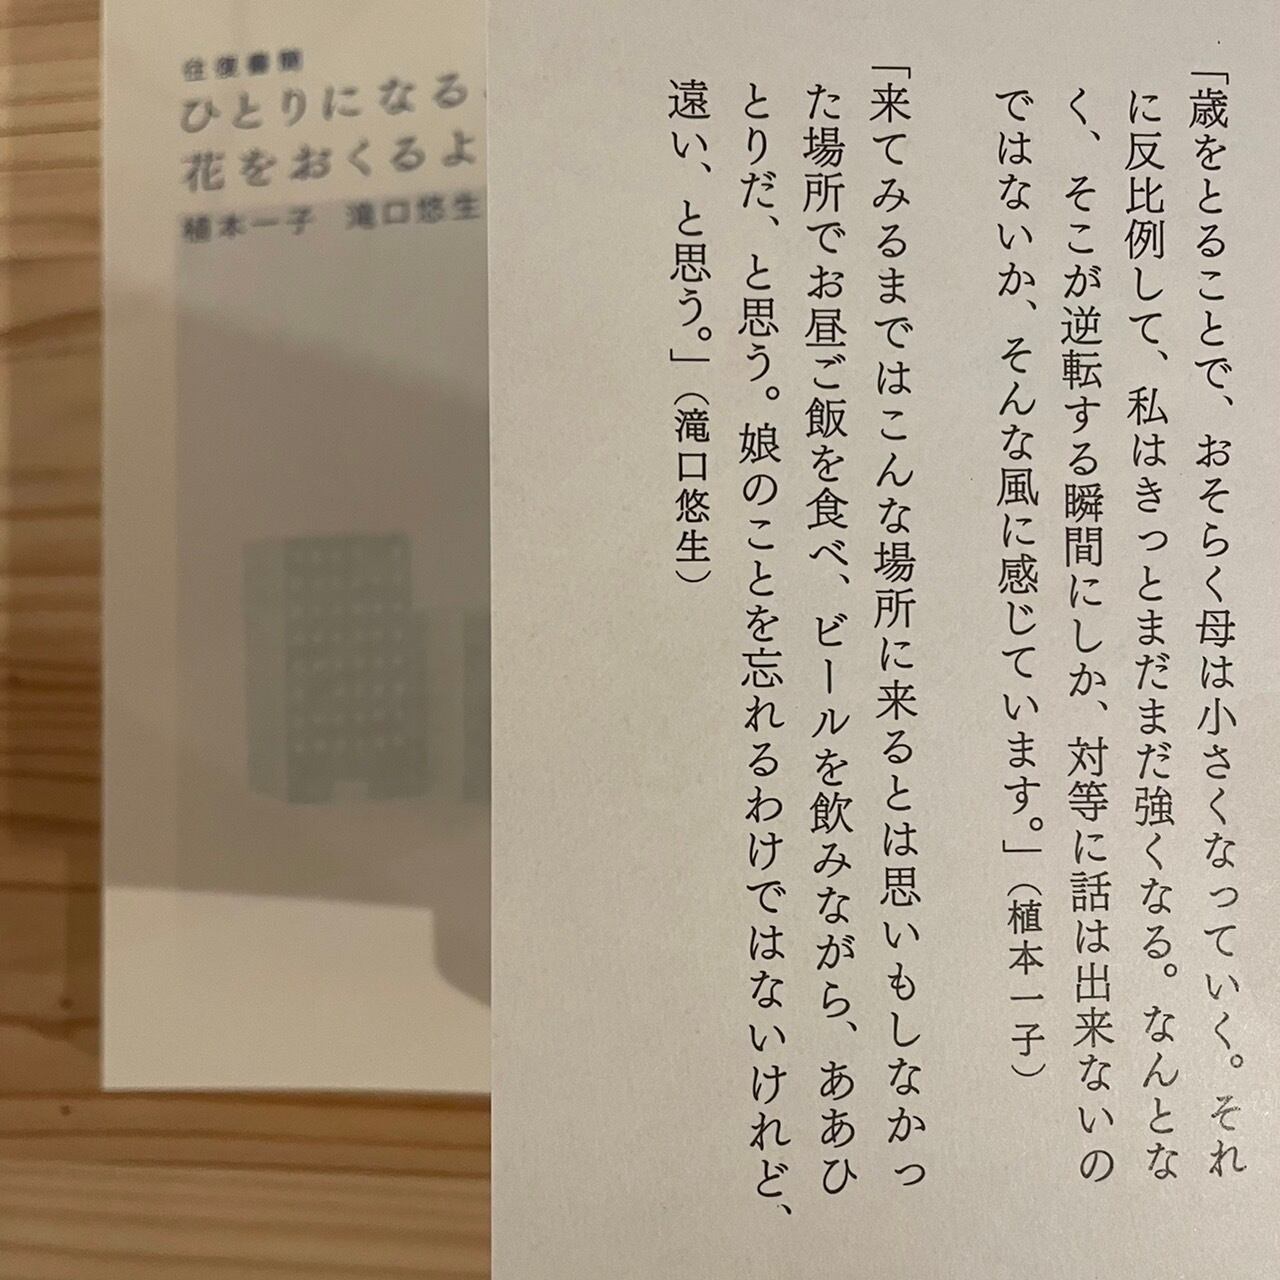 「歳をとることで、おそらく母は小さくなっていく。それ
に反比例して、私はきっとまだまだ強くなる。なんとな
く、そこが逆転する瞬間にしか、対等に話は出来ないの
ではないか、そんな風に感じています。」（植本一子）
「来てみるまではこんな場所に来るとは思いもしなかっ
た場所でお昼ご飯を食べ、ビールを飲みながら、ああひ
とりだ、と思う。娘のことを忘れるわけではないけれど、
遠い、と思う。」（滝口悠生）
往復書簡
ひとりになる
花をおくるよ
植本一子 滝口悠生